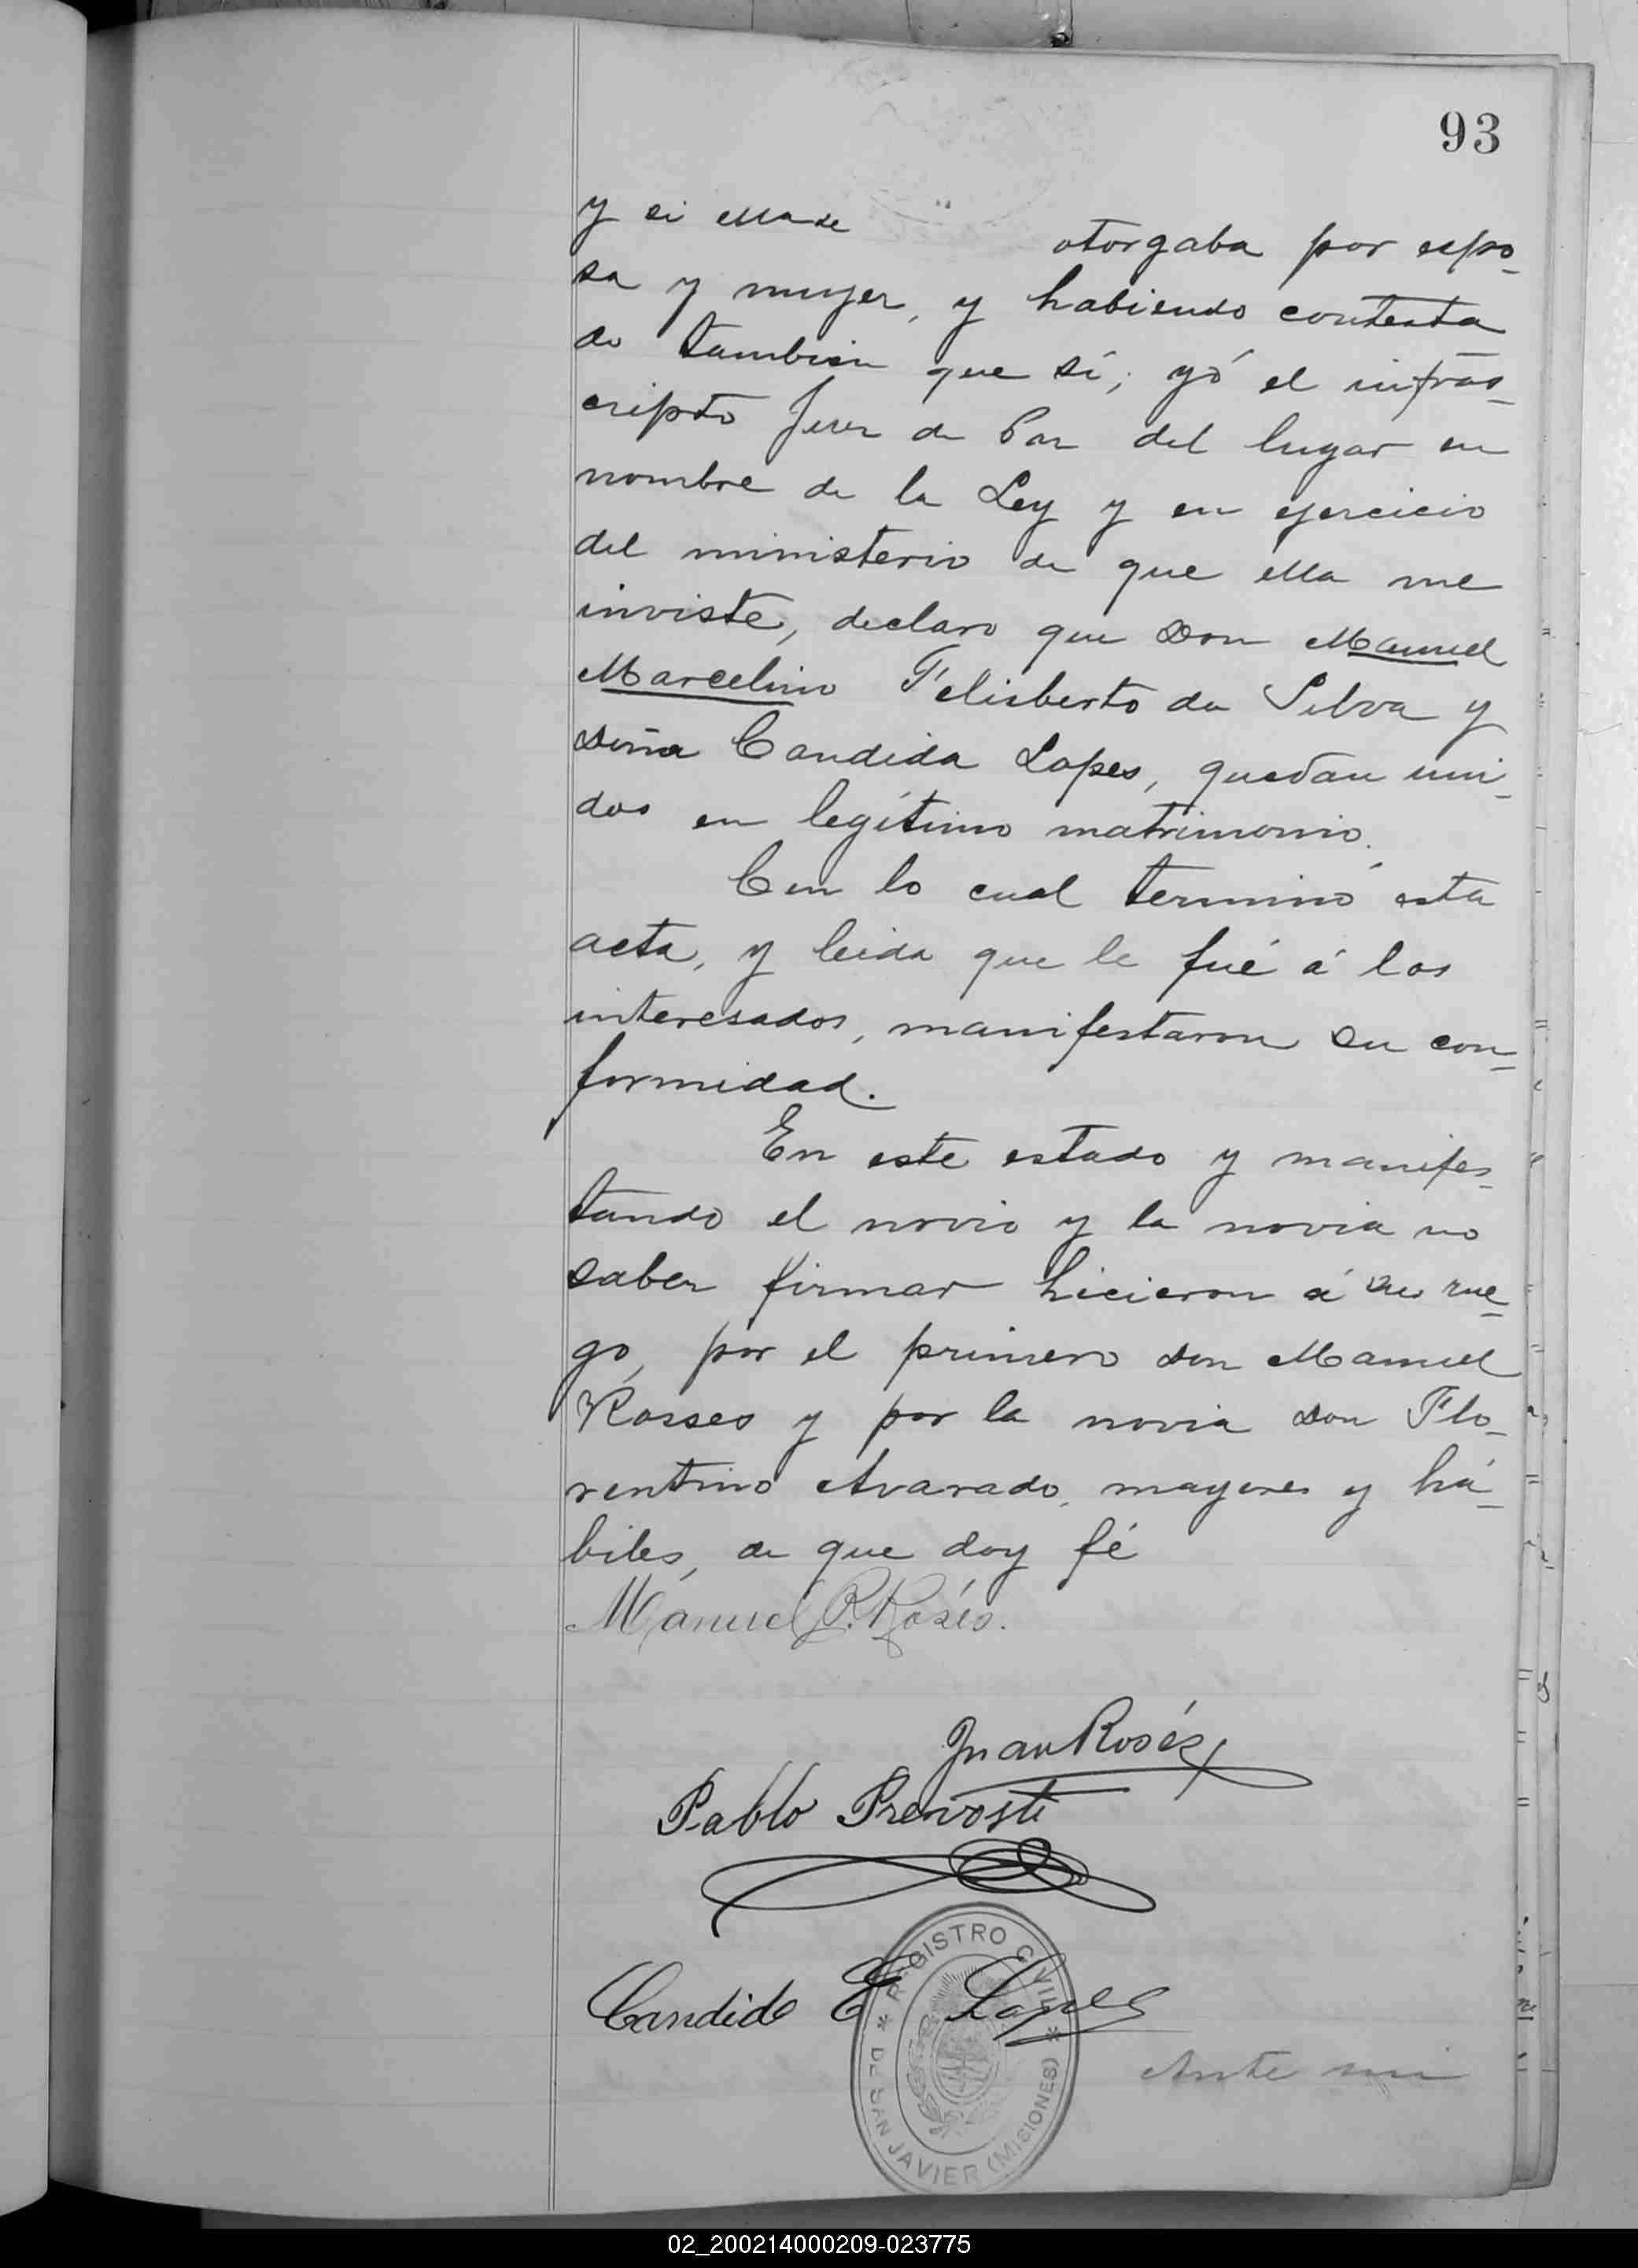 93
y si ella se otorgaba por espo-
sa y mujer, y habiendo contesta
do tambien que sí; yó el infras-
cripto Juez de Paz del lugar en
nombre de la Ley y en ejercicio
del ministerio de que ella me
inviste, declaro que Don Manuel
Marcelino Felisberto da Silva y
doña Candida Lopes, quedan uni-
dos en legítimo matrimonio.
Con lo cual terminó esta
acta, y leida que le fué á los
interesados, manifestaron su con-
formidad.
En este estado y manifes-
tando el novio y la novia no
saber firmar hicieron á su rue-
go, por el primero don Manuel
Rosses y por la novia don Flo-
rentino Alvarado, mayores y há-
biles, de que doy fé
Manuel R. Rosés.
Juan Rosés
Pablo Prevosti
Candido E Lopes
REGISTRO CIVIL
* DE SAN JAVIER (MISIONES) *
Ante mi
02_200214000209-023775